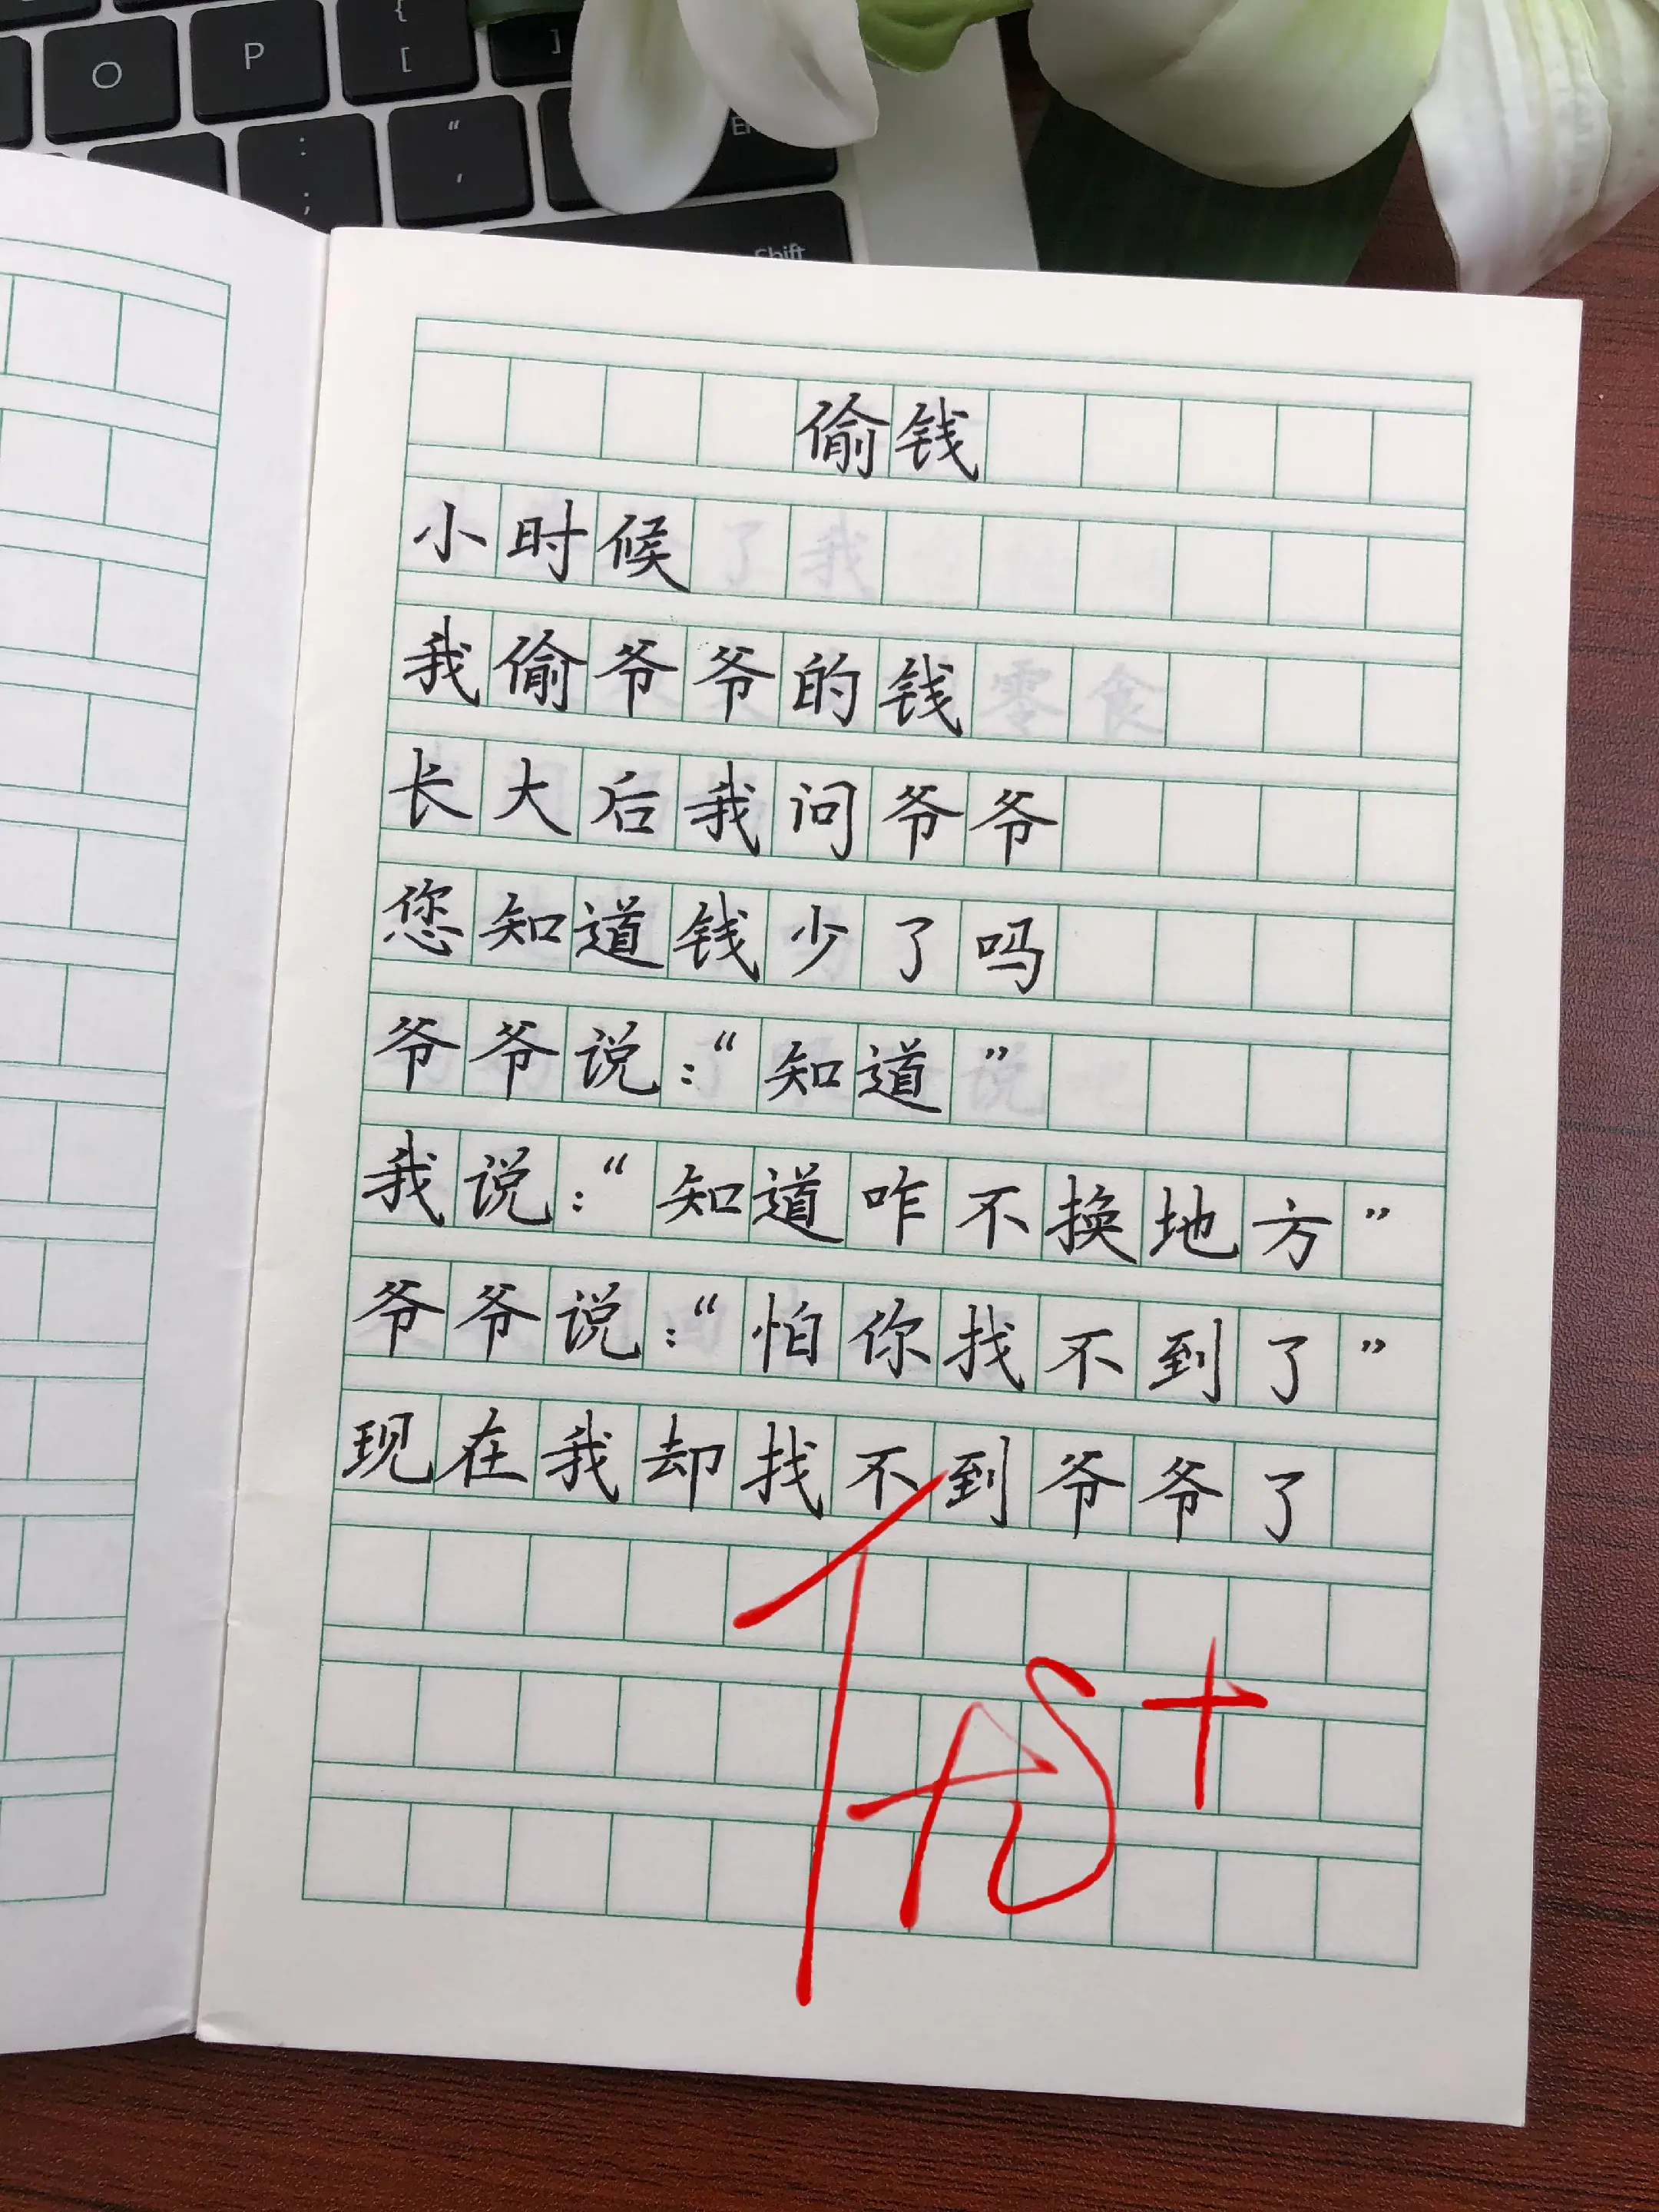 O P { [ ]
: ; " '
Shift
偷钱
小时候
我偷爷爷的钱
长大后我问爷爷
您知道钱少了吗
爷爷说:“知道”
我说:“知道咋不换地方”
爷爷说:“怕你找不到了”
现在我却找不到爷爷了